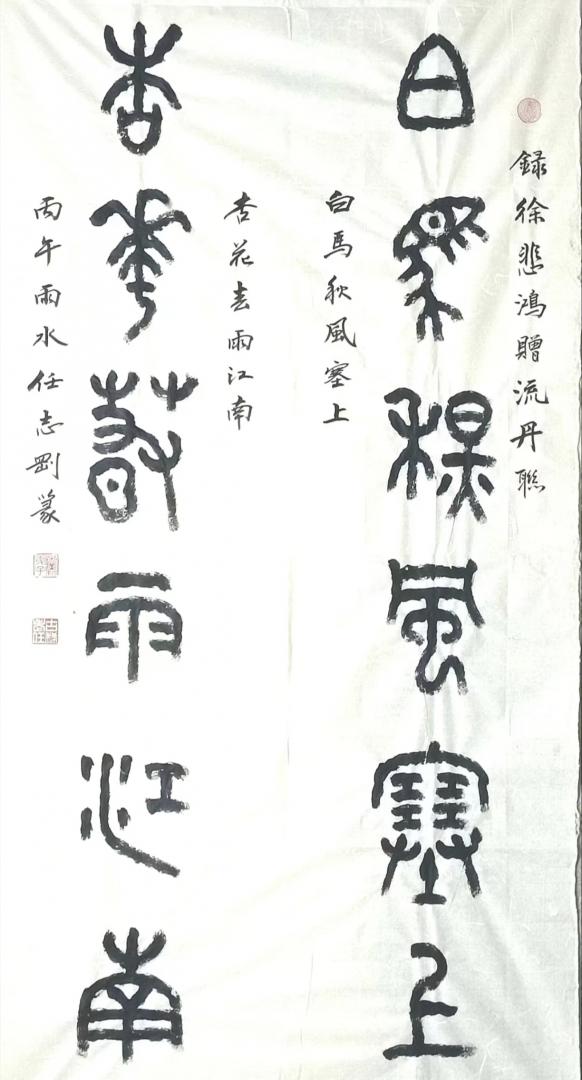 錄徐悲鴻贈流丹聯
白馬秋風塞上
白馬秋風塞上
杏花春雨江南
杏華萅雨江南
丙午雨水任志剛篆